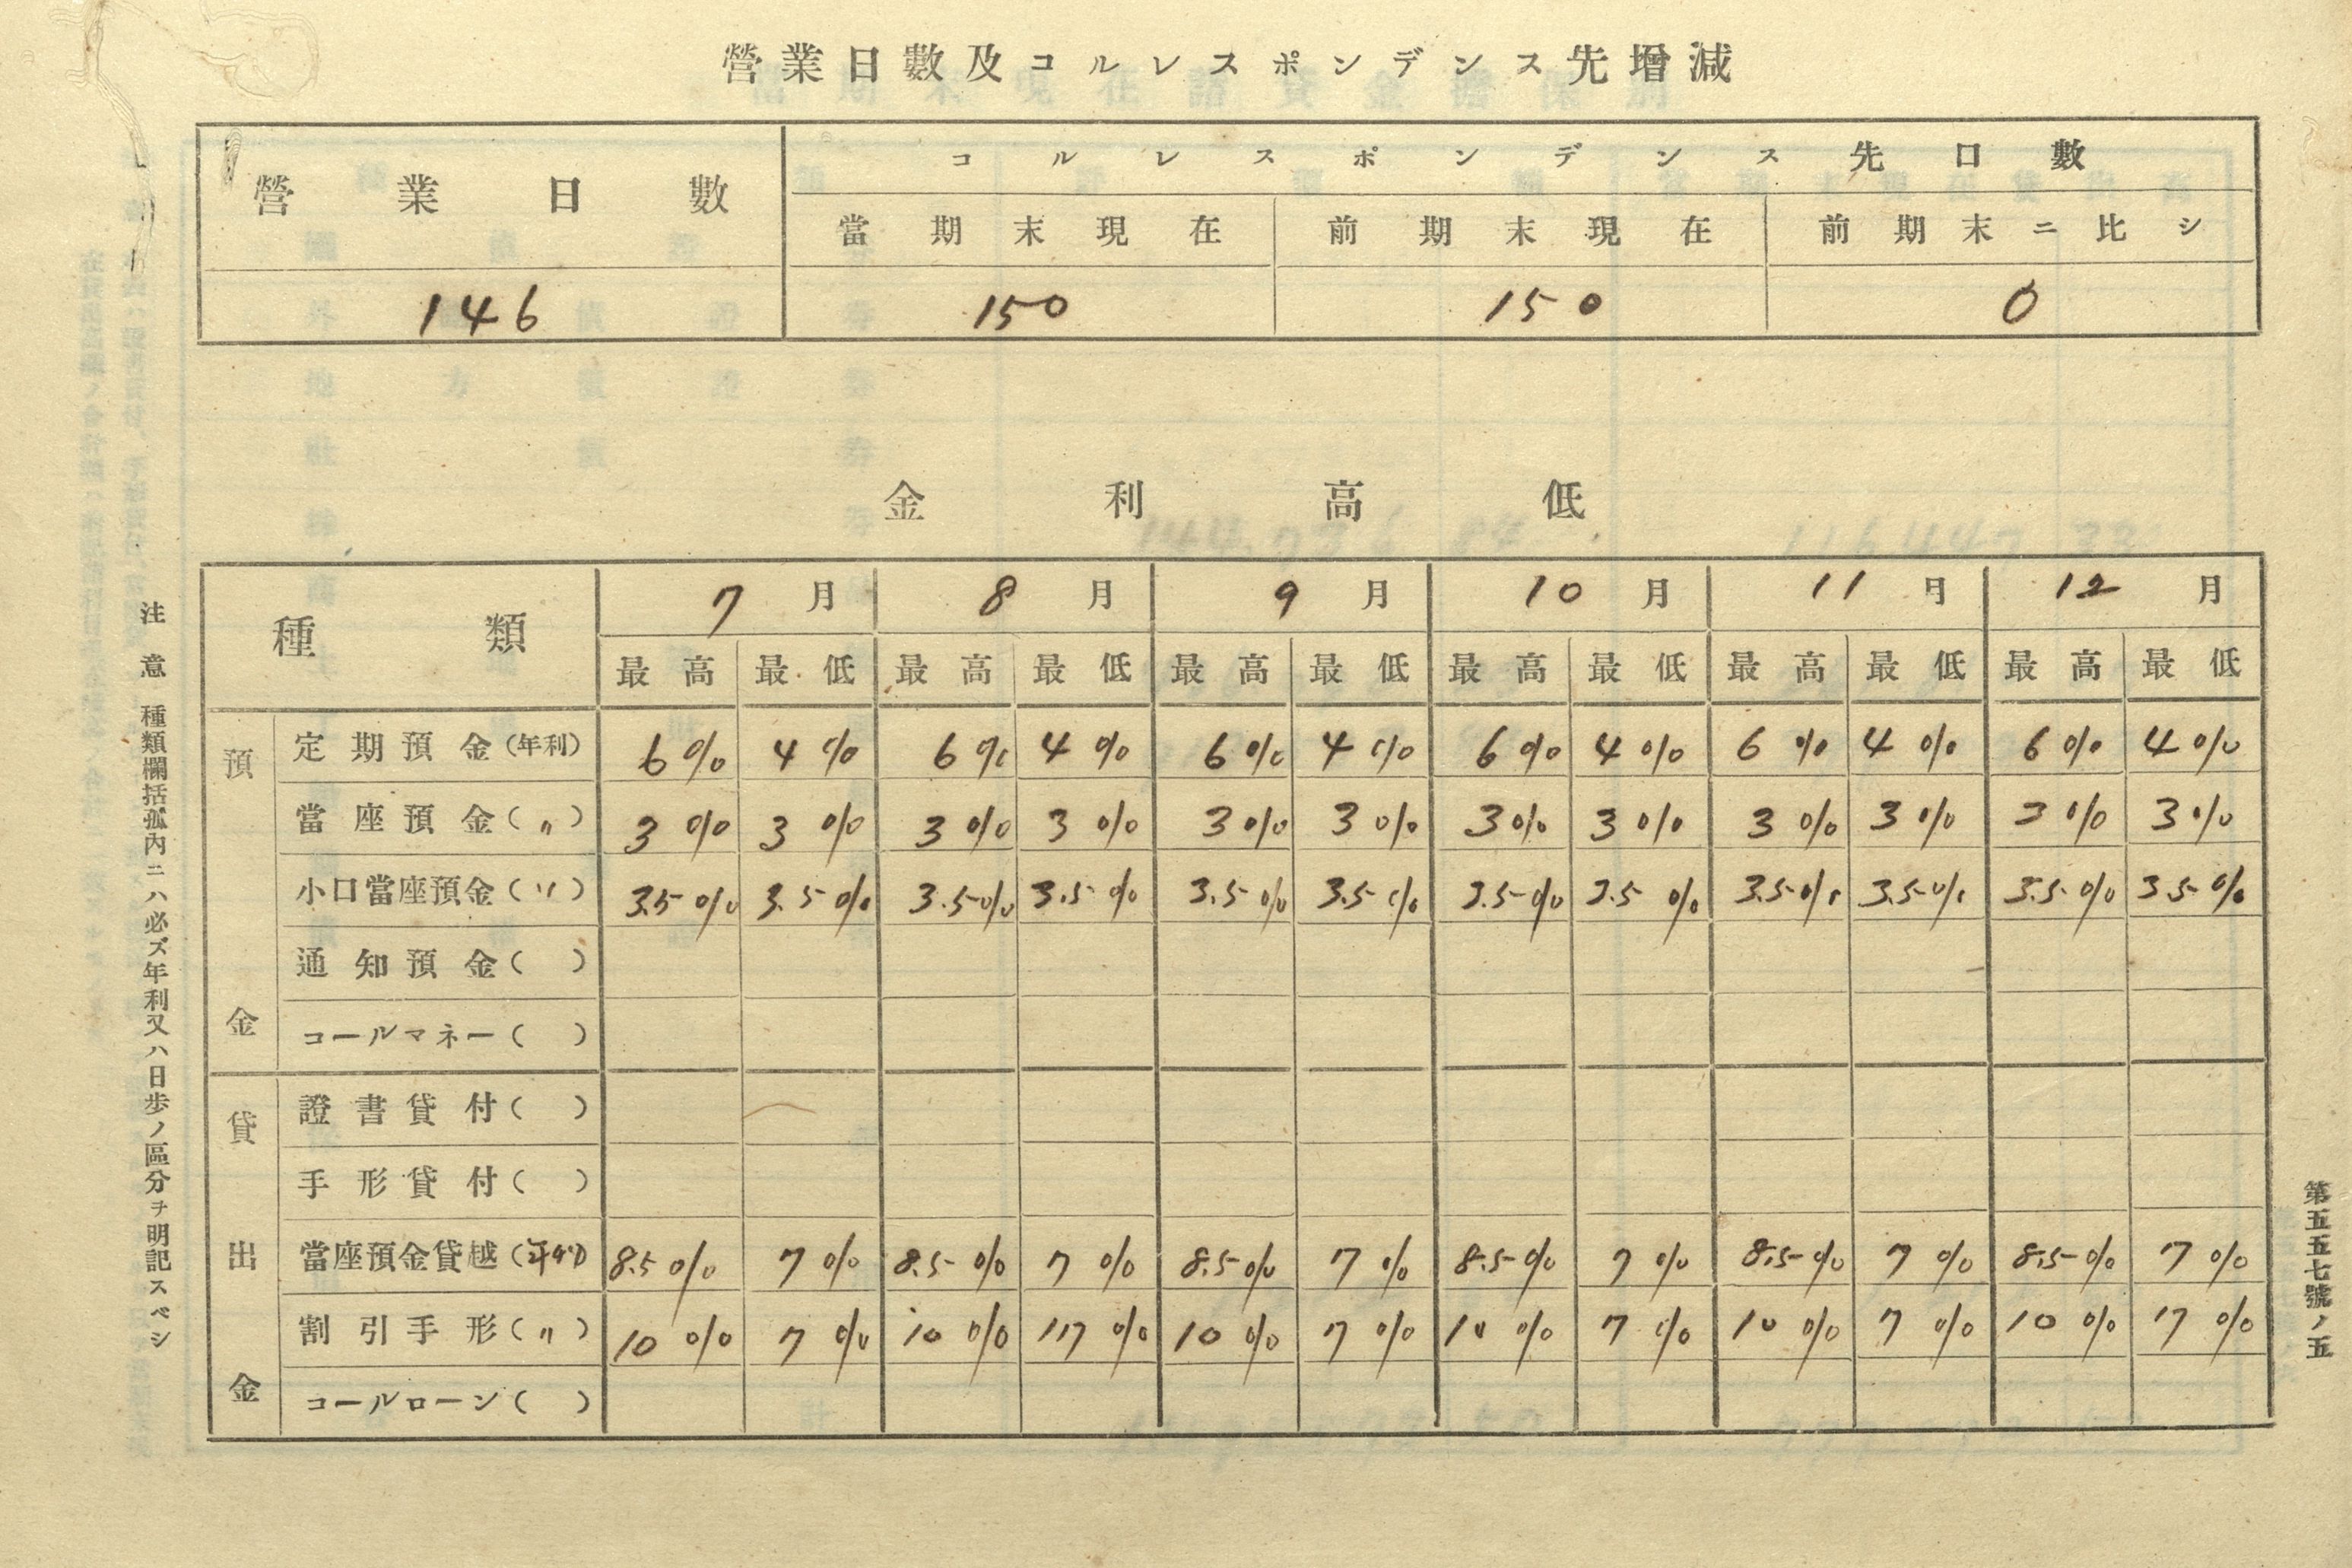 營業日數及コルレスポンデンス先增減
營業日數
コルレスポンデンス先口數
當期末現在 前期末現在 前期末ニ比シ
146 150 150 0
金利高低
種類 7月 8月 9月 10月 11月 12月
最高 最低 最高 最低 最高 最低 最高 最低 最高 最低 最高 最低
預金
定期預金(年利) 6% 4% 6% 4% 6% 4% 6% 4% 6% 4% 6% 4%
當座預金(〃) 3% 3% 3% 3% 3% 3% 3% 3% 3% 3% 3% 3%
小口當座預金(〃) 3.5% 3.5% 3.5% 3.5% 3.5% 3.5% 3.5% 3.5% 3.5% 3.5% 3.5% 3.5%
通知預金( )
コールマネー( )
貸出金
證書貸付( )
手形貸付( )
當座預金貸越(年利) 8.5% 7% 8.5% 7% 8.5% 7% 8.5% 7% 8.5% 7% 8.5% 7%
割引手形(〃) 10% 7% 10% 7% 10% 7% 10% 7% 10% 7% 10% 7%
コールローン( )
注意 種類欄括孤內ニハ必ズ年利又ハ日歩ノ區分ヲ明記スベシ
第五五七號ノ五